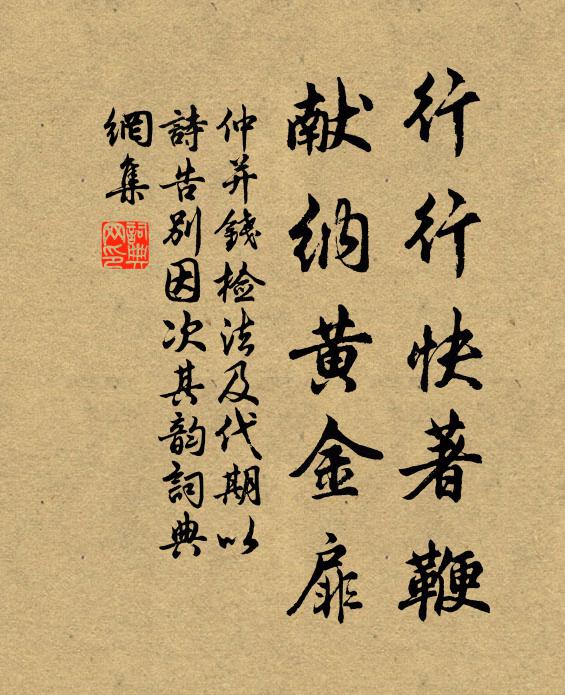 行行快著鞭
献纳黄金扉
仲并錢检法及代期以
詩告别因次其韵詞典
網集
詞典網印